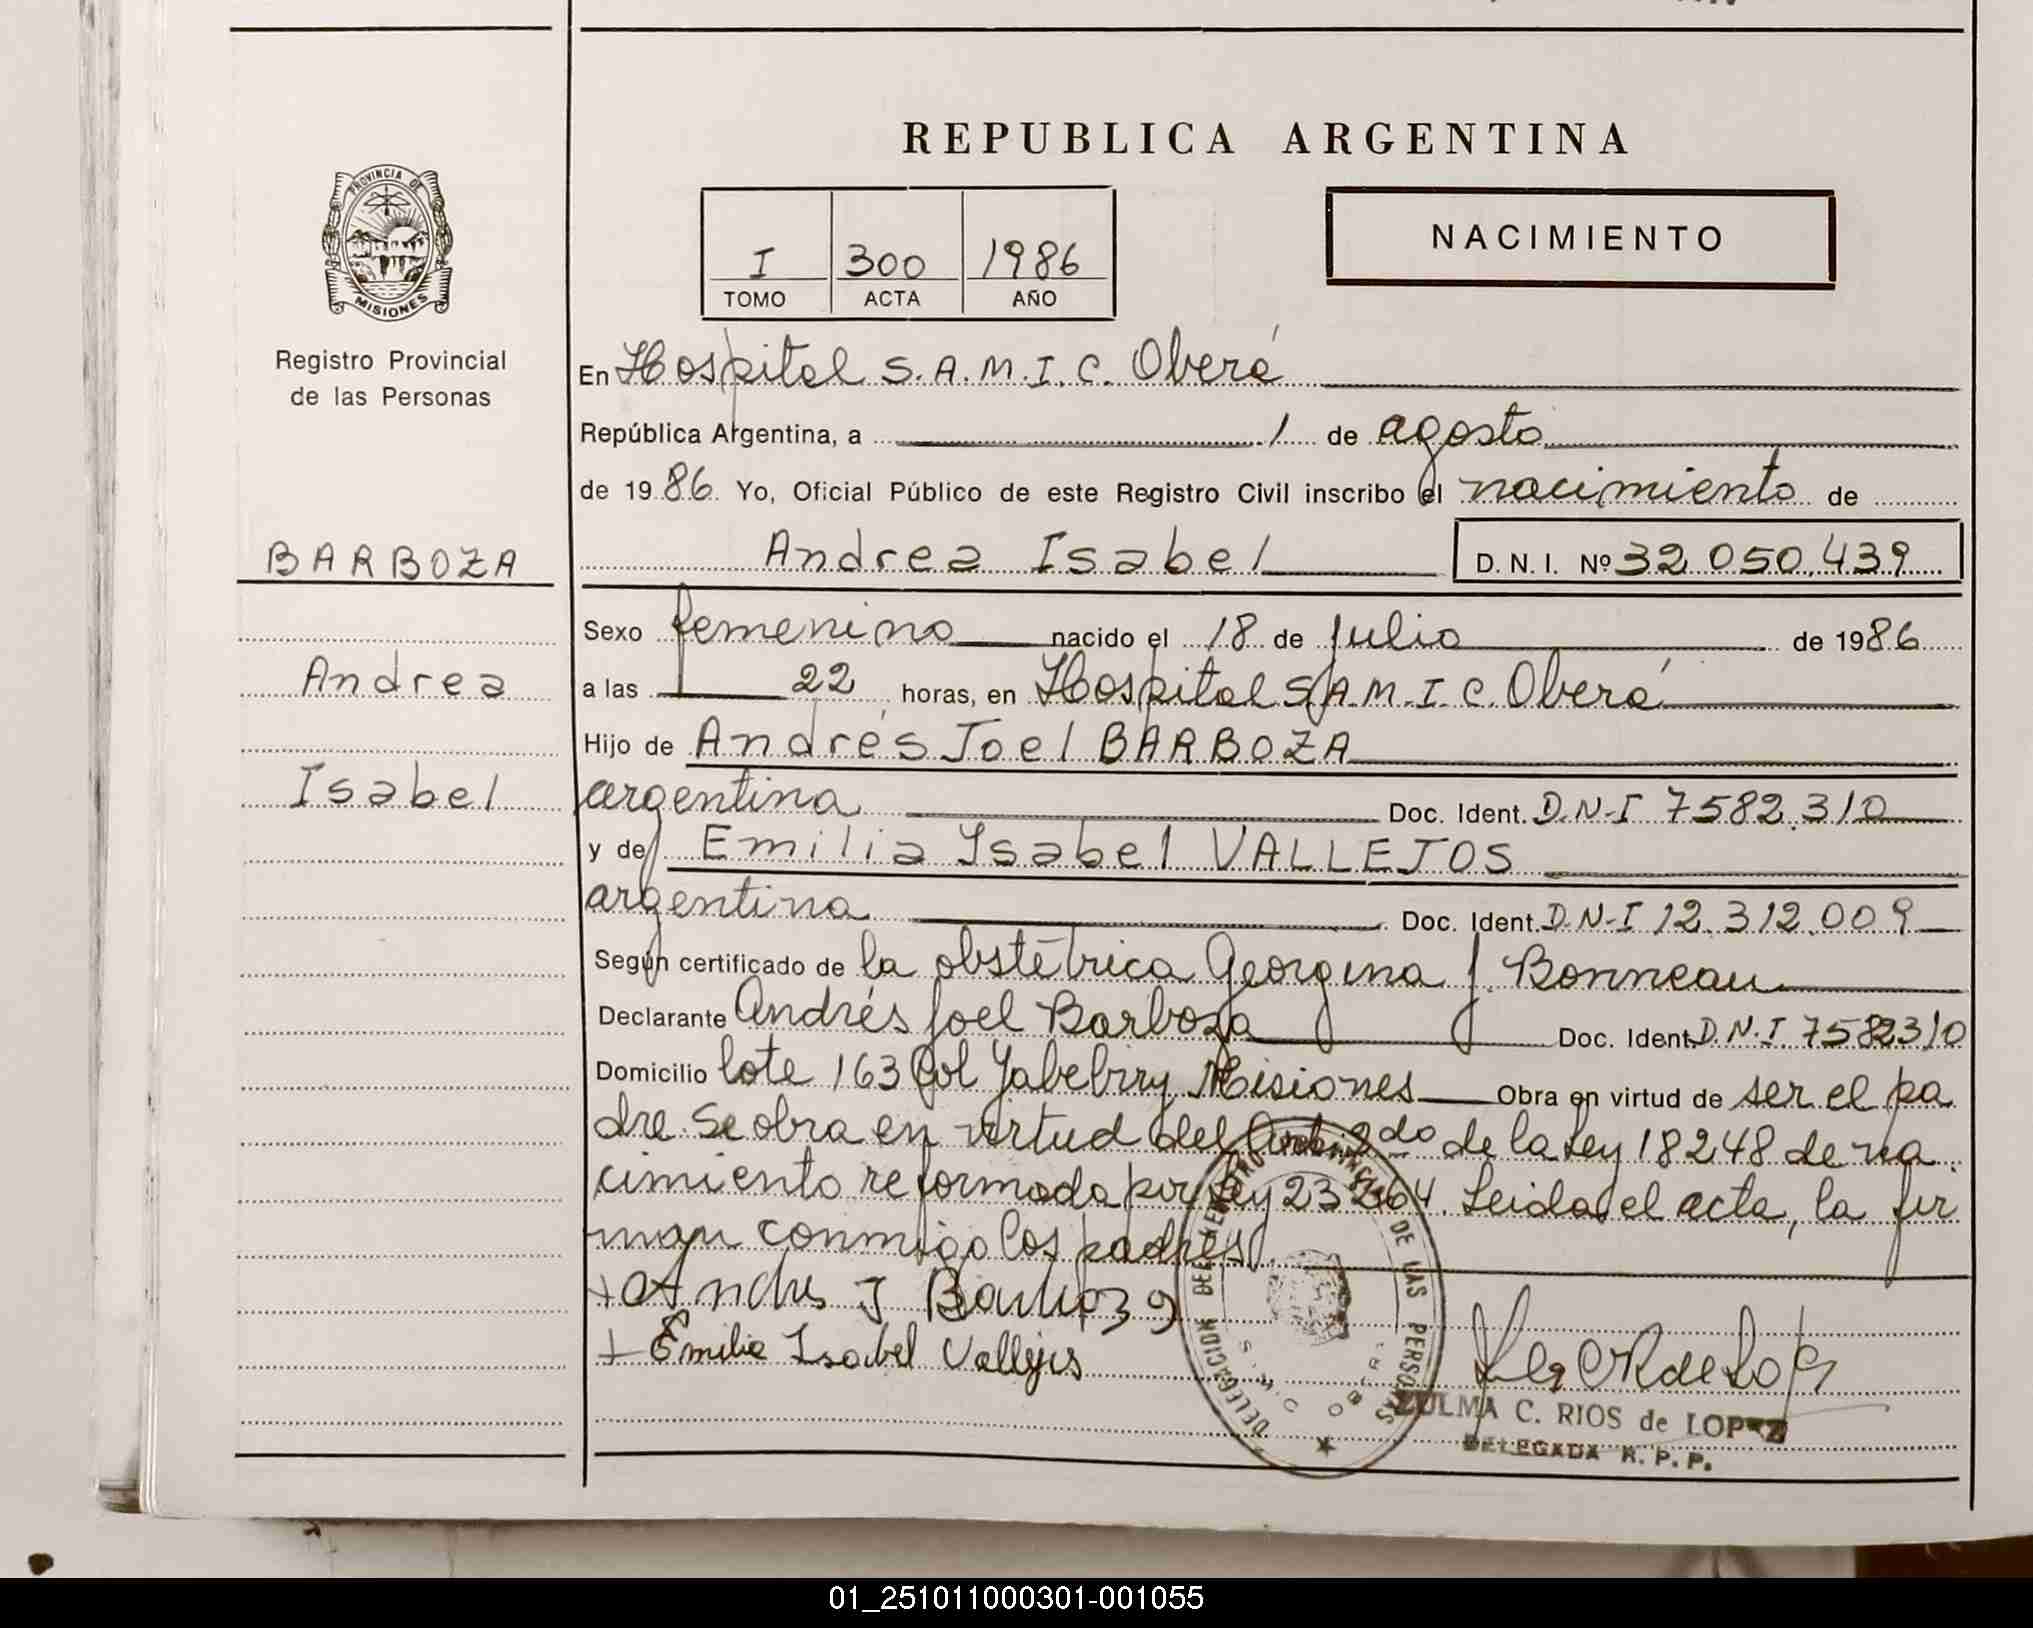 REPUBLICA ARGENTINA
PROVINCIA DE
MISIONES
Registro Provincial
de las Personas
I 300 1986
TOMO ACTA AÑO
NACIMIENTO
En Hospital S.A.M.I.C. Oberá
República Argentina, a 1 de agosto
de 1986 Yo, Oficial Público de este Registro Civil inscribo el nacimiento de
BARBOZA
Andrea Isabel D.N.I. Nº 32.050.439
Sexo femenino nacido el 18 de Julio de 1986
Andrea
a las 22 horas, en Hospital S.A.M.I.C. Oberá
Hijo de Andrés Joel BARBOZA
Isabel
argentina Doc. Ident. D.N.I 7582.310
y de Emilia Isabel VALLEJOS
argentina Doc. Ident. D.N.I 12.312.009
Según certificado de la obstétrica Georgina J. Bonneau
Declarante Andrés Joel Barboza Doc. Ident. D.N.I. 7582310
Domicilio lote 163 Col Yabebiry Misiones Obra en virtud de ser el pa
dre. Se obra en virtud del Art. 2do de la Ley 18248 de na
cimiento reformada por Ley 23264. Leida el acta, la fir
man conmigo los padres.
+ Andres J Barboza
+ Emilia Isabel Vallejos
DELEGACION DEL REGISTRO PROVINCIAL DE LAS PERSONAS
ZULMA C. RIOS de LOPEZ
DELEGADA R. P. P.
01_251011000301-001055